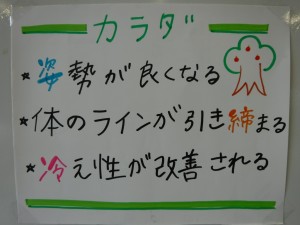 カラダ
★姿勢が良くなる
★体のラインが引き締まる
★冷え性が改善される